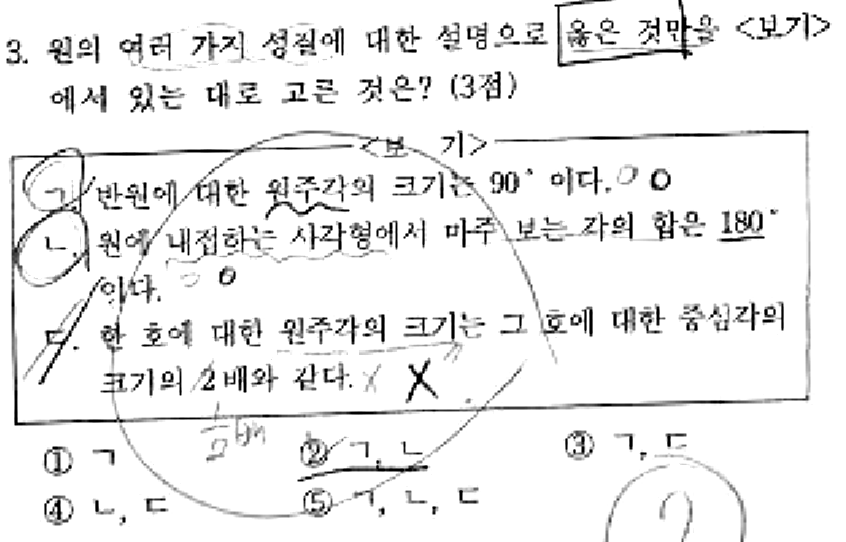 3. 원의 여러 가지 성질에 대한 설명으로 옳은 것만을 <보기>
에서 있는 대로 고른 것은? (3점)
<보 기>
ㄱ 반원에 대한 원주각의 크기는 90° 이다. O O
ㄴ. 원에 내접하는 사각형에서 마주 보는 각의 합은 180°
이다. O O
ㄷ. 한 호에 대한 원주각의 크기는 그 호에 대한 중심각의
크기의 2배와 같다. X X
1/2
① ㄱ ② ㄱ, ㄴ ③ ㄱ, ㄷ
④ ㄴ, ㄷ ⑤ ㄱ, ㄴ, ㄷ
2